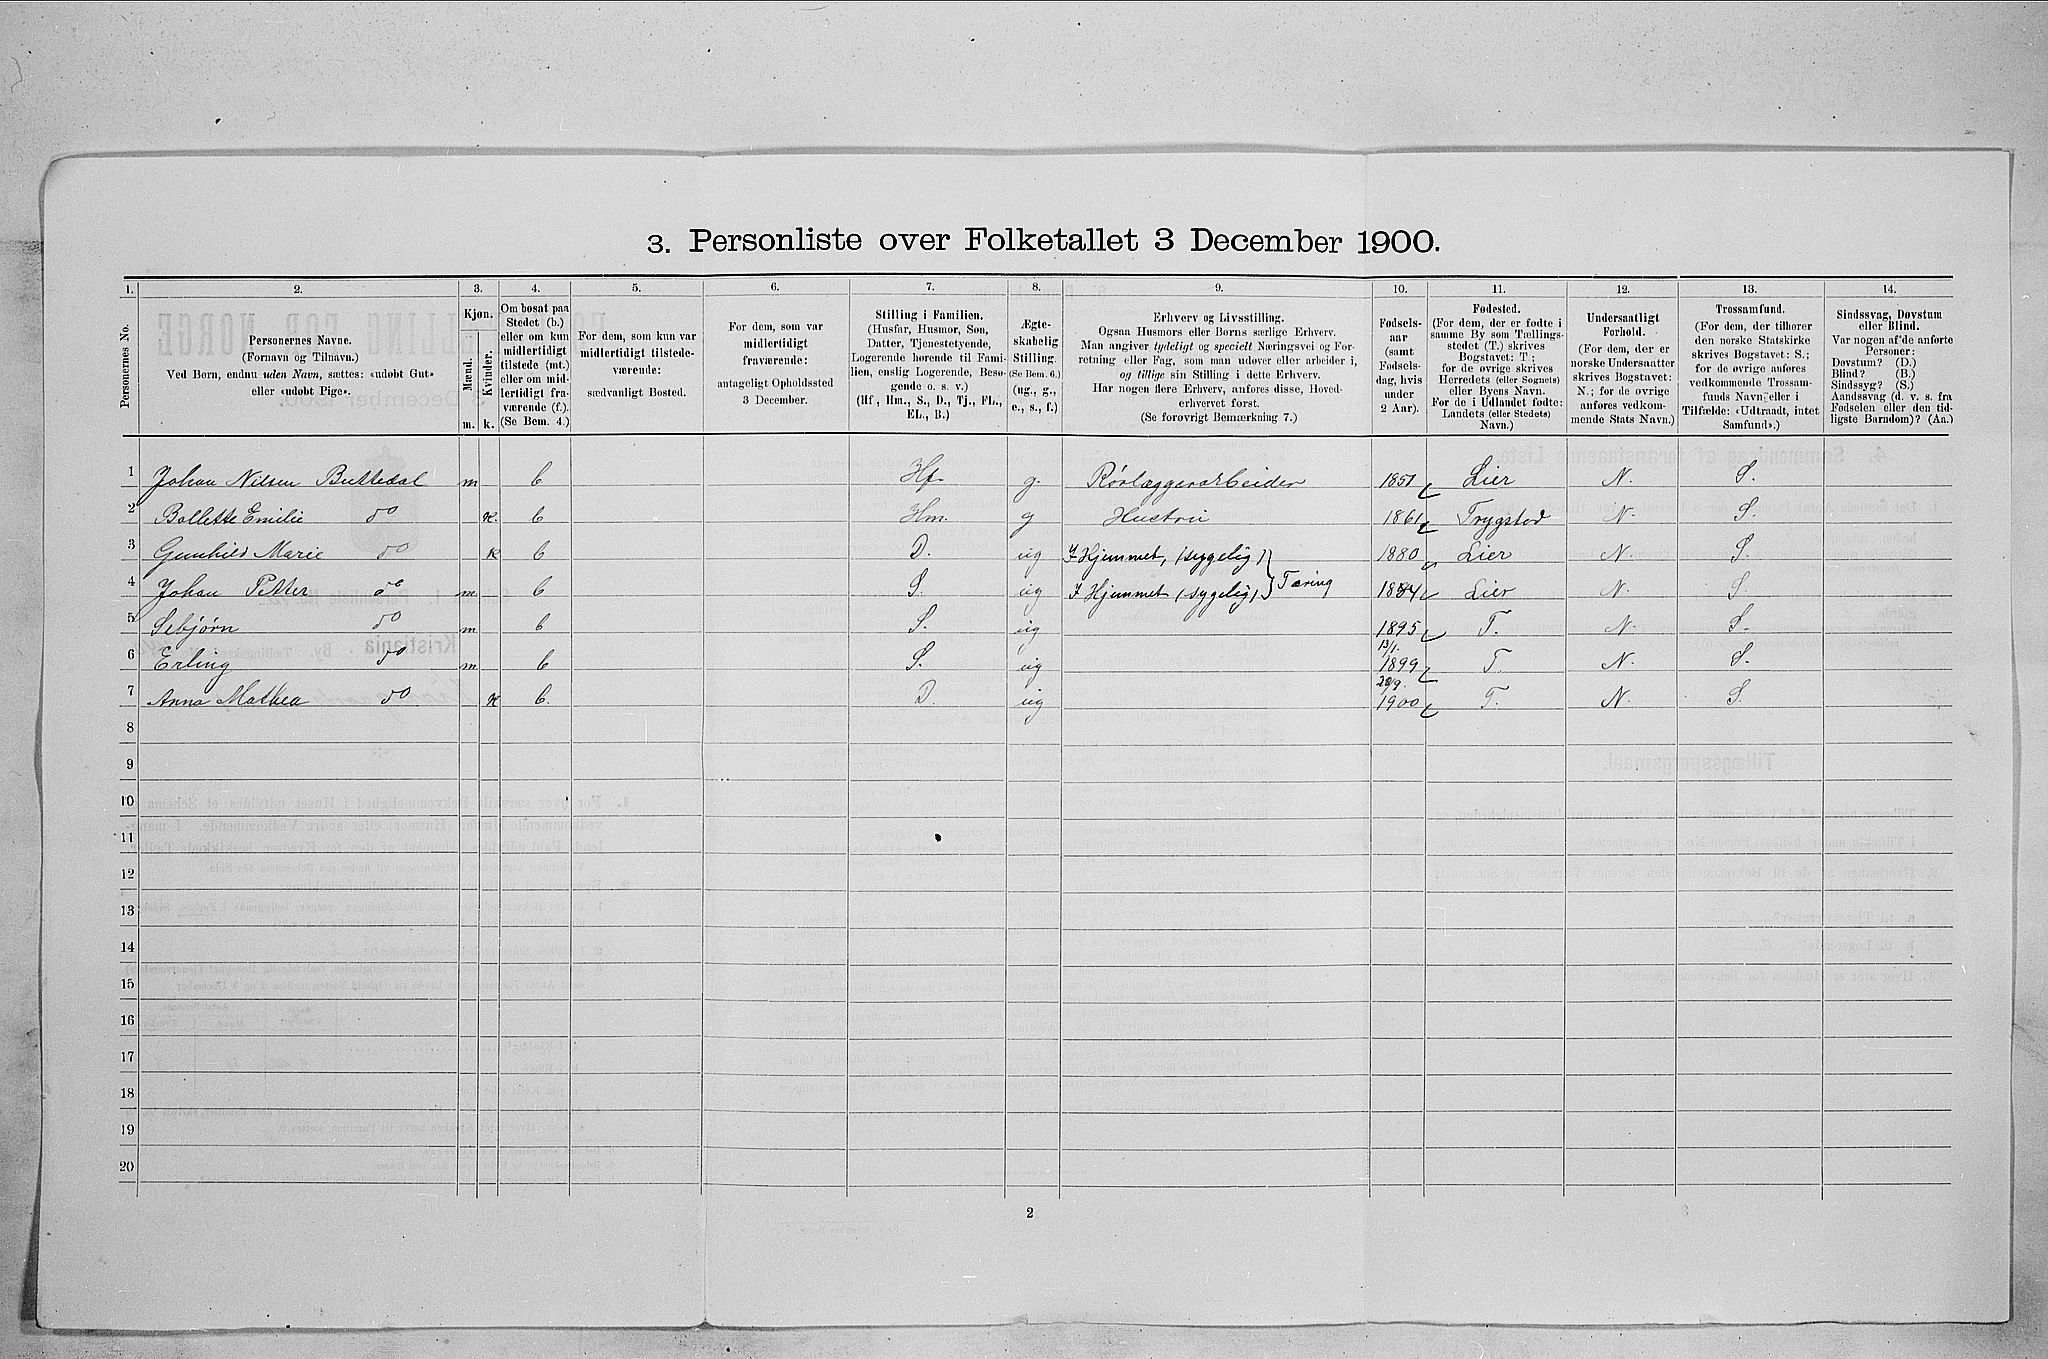 3. Personliste over Folketallet 3 December 1900.
1. 2. 3. 4. 5. 6. 7. 8. 9. 10. 11. 12. 13. 14.
Personernes No.
Personernes Navne.
(Fornavn og Tilnavn.)
Ved Børn, endnu uden Navn, sættes: «udøbt Gut»
eller «udøbt Pige».
Kjøn.
Mænd.
Kvinder.
m. k.
Om bosat paa
Stedet (b.)
eller om kun
midlertidigt
tilstede (mt.)
eller om mid-
lertidigt fra-
værende (f.).
(Se Bem. 4.)
For dem, som kun var
midlertidigt tilstede-
værende:
sædvanligt Bosted.
For dem, som var
midlertidigt
fraværende:
antageligt Opholdssted
3 December.
Stilling i Familien.
(Husfar, Husmor, Søn,
Datter, Tjenestetyende,
Logerende hørende til Fami-
lien, enslig Logerende, Besø-
gende o. s. v.)
(Hf., Hm., S., D., Tj., FL.,
EL., B.)
Ægte-
skabelig
Stilling.
(Se Bem. 6.)
(ug., g.,
e., s., f.)
Erhverv og Livsstilling.
Ogsaa Husmors eller Børns særlige Erhverv.
Man angiver tydeligt og specielt Næringsvei og For-
retning eller Fag, som man udøver eller arbeider i,
og tillige sin Stilling i dette Erhverv.
Har nogen flere Erhverv, anføres disse, Hoved-
erhvervet først.
(Se forøvrigt Bemærkning 7.)
Fødsels-
aar
(samt
Fødsels-
dag, hvis
under
2 Aar).
Fødested.
(For dem, der er fødte i
samme By som Tællings-
stedet (T.) skrives
Bogstavet: T.;
for de øvrige skrives
Herredets (eller Sognets)
eller Byens Navn.
For de i Udlandet fødte:
Landets (eller Stedets)
Navn.)
Undersaatligt
Forhold.
(For dem, der er
norske Undersaatter
skrives Bogstavet:
N.; for de øvrige
anføres vedkom-
mende Stats Navn.)
Trossamfund.
(For dem, der tilhører
den norske Statskirke
skrives Bogstavet: S.;
for de øvrige anføres
vedkommende Trossam-
funds Navn, eller i
Tilfælde: «Udtraadt, intet
Samfund».)
Sindssvag, Døvstum
eller Blind.
Var nogen af de anførte
Personer:
Døvstum? (D.)
Blind? (B.)
Sindssyg? (S.)
Aandssvag (d. v. s. fra
Fødselen eller den tid-
ligste Barndom)? (Aa.)
1 Johan Nilsen Buttedal m b Hf. g. Rørlæggerarbeider 1851 Lier N. S.
2 Bollette Emilie do k. b Hm. g Hustru 1861 Trygstad N. S.
3 Gunhild Marie do k b D. ug I Hjemmet, (sygelig) 1880 Lier N. S.
4 Johan Petter do m b S. ug I Hjemmet (sygelig) Tæring 1884 Lier N. S.
5 Sebjørn do m b S. ug 1895 T. N. S.
6 Erling do m b S. ug 13/1. 1899 T. N. S.
7 Anna Mathea do k b. D. ug 1900 T. N. S.
8
9
10
11
12
13
14
15
16
17
18
19
20
2